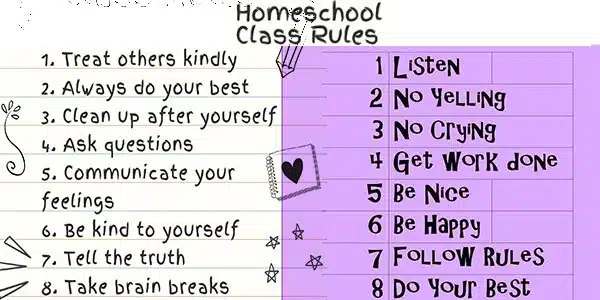 Homeschool
Class Rules
1. Treat others kindly
2. Always do your best
3. Clean up after yourself
4. Ask questions
5. Communicate your
feelings
6. Be kind to yourself
7. Tell the truth
8. Take brain breaks
1 Listen
2 No Yelling
3 No Crying
4 Get Work done
5 Be Nice
6 Be Happy
7 Follow Rules
8 Do Your Best